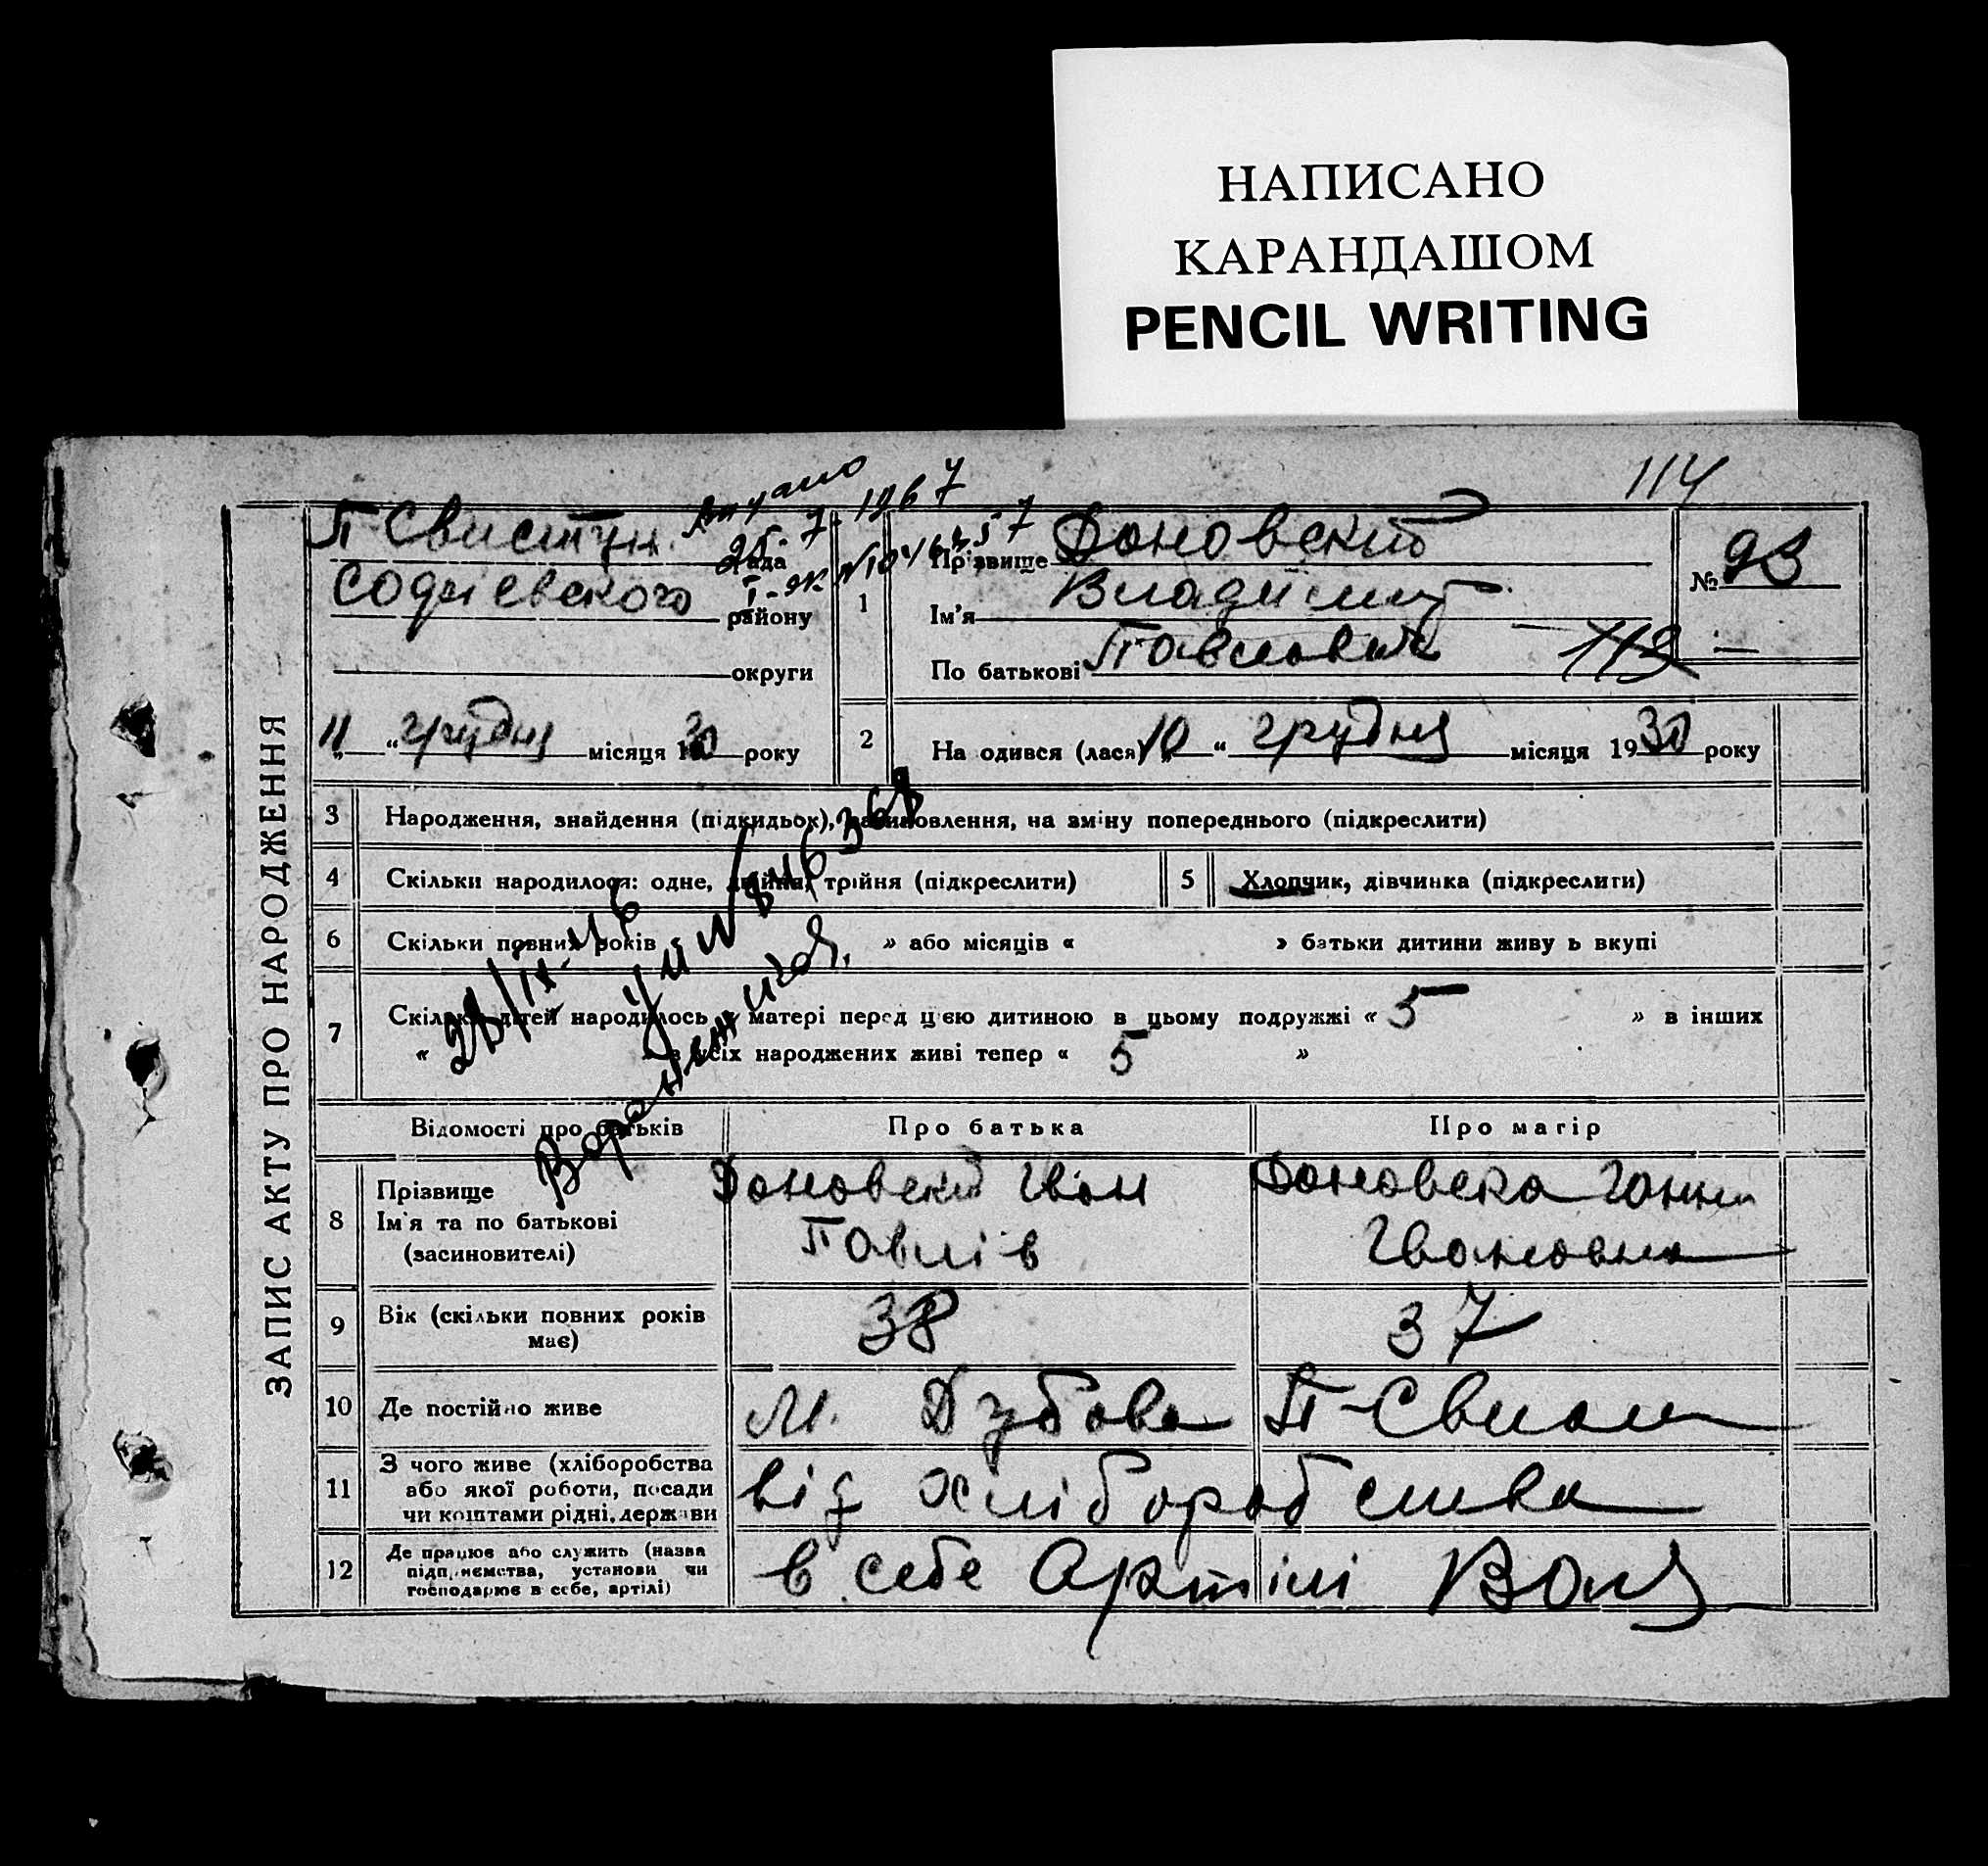 НАПИСАНО
КАРАНДАШОМ
PENCIL WRITING
114
ЗАПИС АКТУ ПРО НАРОДЖЕННЯ
П-Свистун. рада
району
округи
"11" грудня місяця 1930 року
25.7.1967
1 Прізвище
Ім'я Владимир
По батькові Павлович
№ 93
113
2 На одився (лася) "10" грудня місяця 1930 року
3 Народження, знайдення (підкидьок), засиновлення, на зміну попереднього (підкреслити)
4 Скільки народилося: одне, двійня, трійня (підкреслити)
5 Хлопчик, дівчинка (підкреслити)
6 Скільки повних років « » або місяців « » батьки дитини живу ь вкупі
7 Скільки дітей народилось у матері перед цією дитиною в цьому подружжі « 5 » в інших
« » з усіх народжених живі тепер « 5 »
Відомості про батьків Про батька Про матір
8 Прізвище
Ім'я та по батькові
(засиновителі)
Доновский Іван
Павлів
Доновска Ганна
Івановна
9 Вік (скільки повних років має) 38 37
10 Де постійно живе М. Дубова П-Свист
11 З чого живе (хліборобства
або якої роботи, посади
чи коштами рідні, держави
від хліборобства
12 Де працює або служить (назва
підприємства, установи чи
господарює в себе, артілі)
в себе Артілі Воля